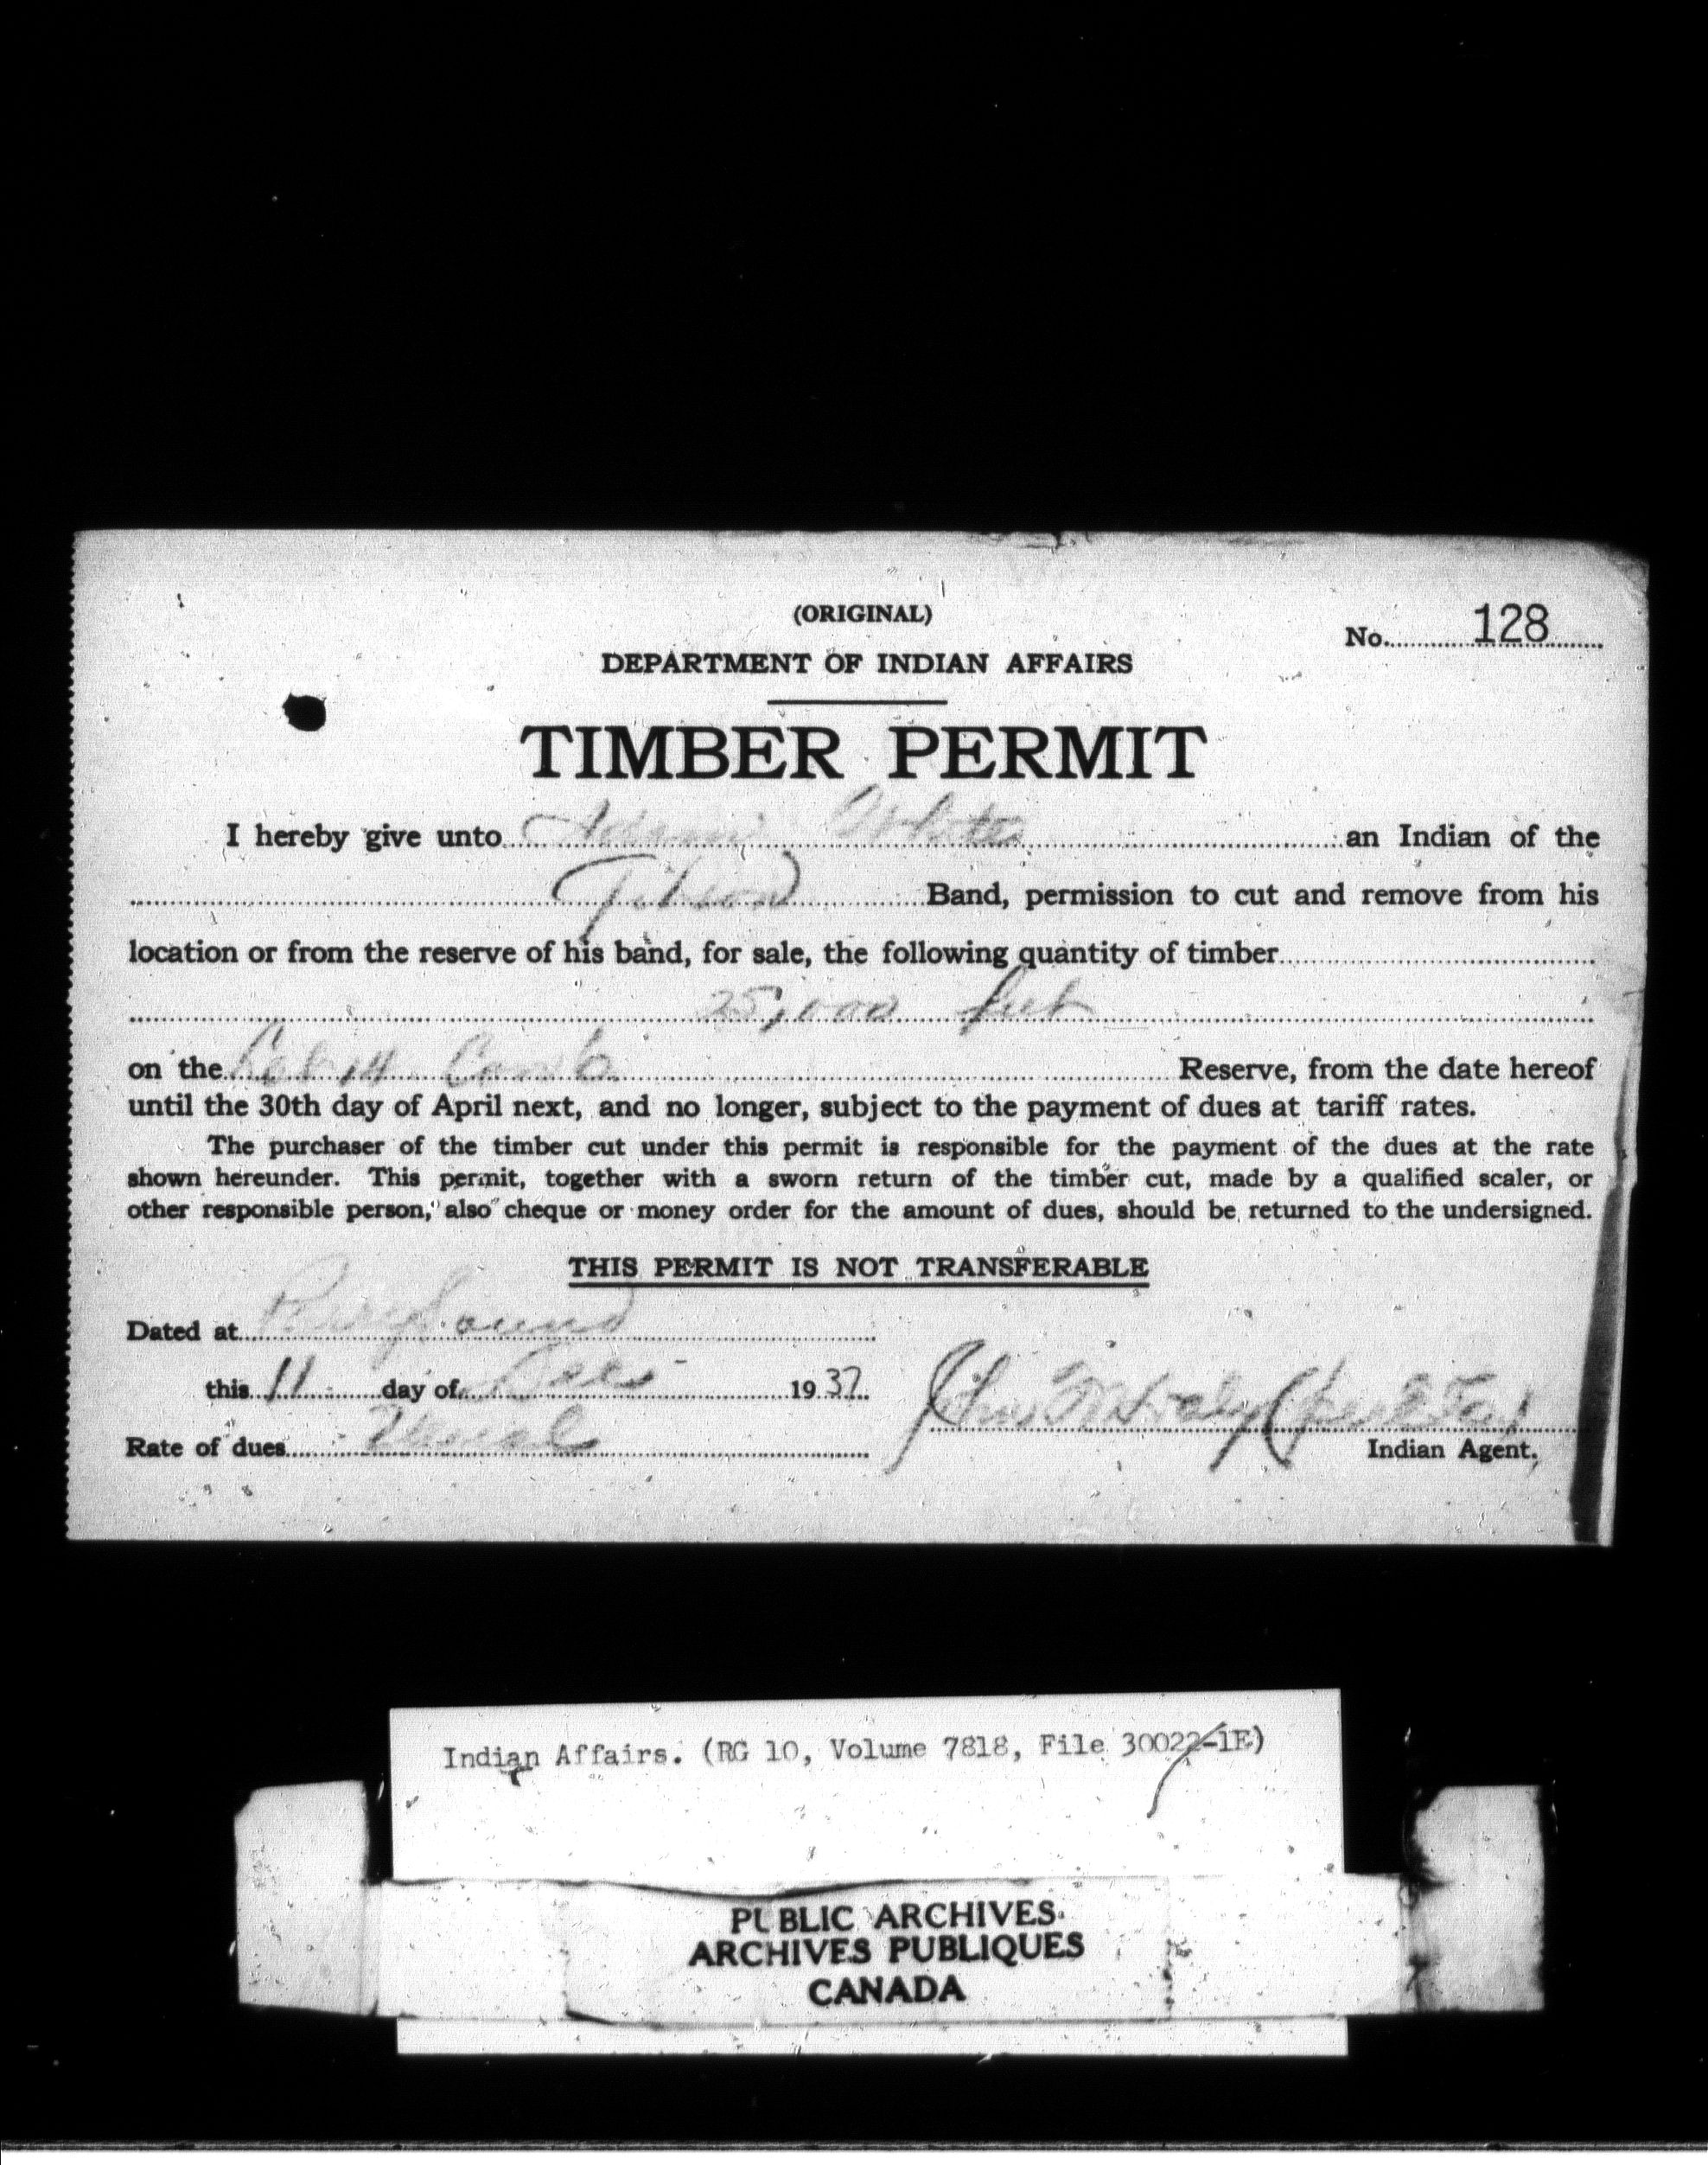 (ORIGINAL)
No. 128
DEPARTMENT OF INDIAN AFFAIRS
TIMBER PERMIT
I hereby give unto Adam White an Indian of the
Gibson Band, permission to cut and remove from his
location or from the reserve of his band, for sale, the following quantity of timber
25,000 feet
on the Lot 14 Con 6 Reserve, from the date hereof
until the 30th day of April next, and no longer, subject to the payment of dues at tariff rates.
The purchaser of the timber cut under this permit is responsible for the payment of the dues at the rate
shown hereunder. This permit, together with a sworn return of the timber cut, made by a qualified scaler, or
other responsible person, also cheque or money order for the amount of dues, should be returned to the undersigned.
THIS PERMIT IS NOT TRANSFERABLE
Dated at Parry Sound
this 11 day of Dec 1937
Rate of dues Usual
John M Daly
Indian Agent.
Indian Affairs. (RG 10, Volume 7818, File 30022-1E)
PUBLIC ARCHIVES
ARCHIVES PUBLIQUES
CANADA